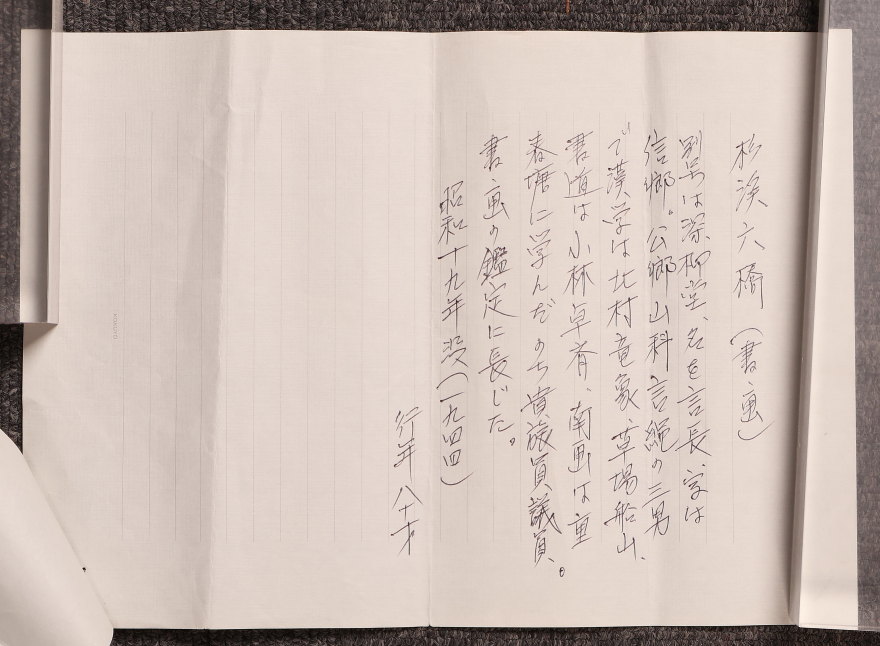 杉渓六橋（書、画）
別号は深柳堂、名を言長、字は
信郷。公郷山科言縄の三男
で漢学は北村竜象、草場船山、
書道は小林卓斉、南画は重
春塘に学んだのち貴族員議員。
書、画の鑑定に長じた。
昭和十九年没（一九四四）
行年八十才
KOKUYO